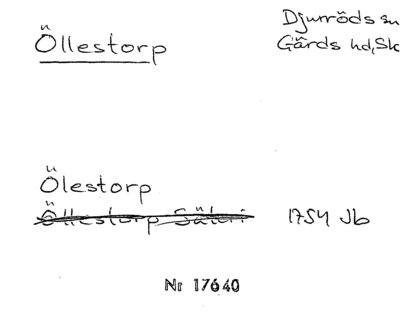 Öllestorp
Djurröds sn
Gärds hd, Sk
Ölestorp
Öllestorp Säteri
1754 Jb
Nr 17640